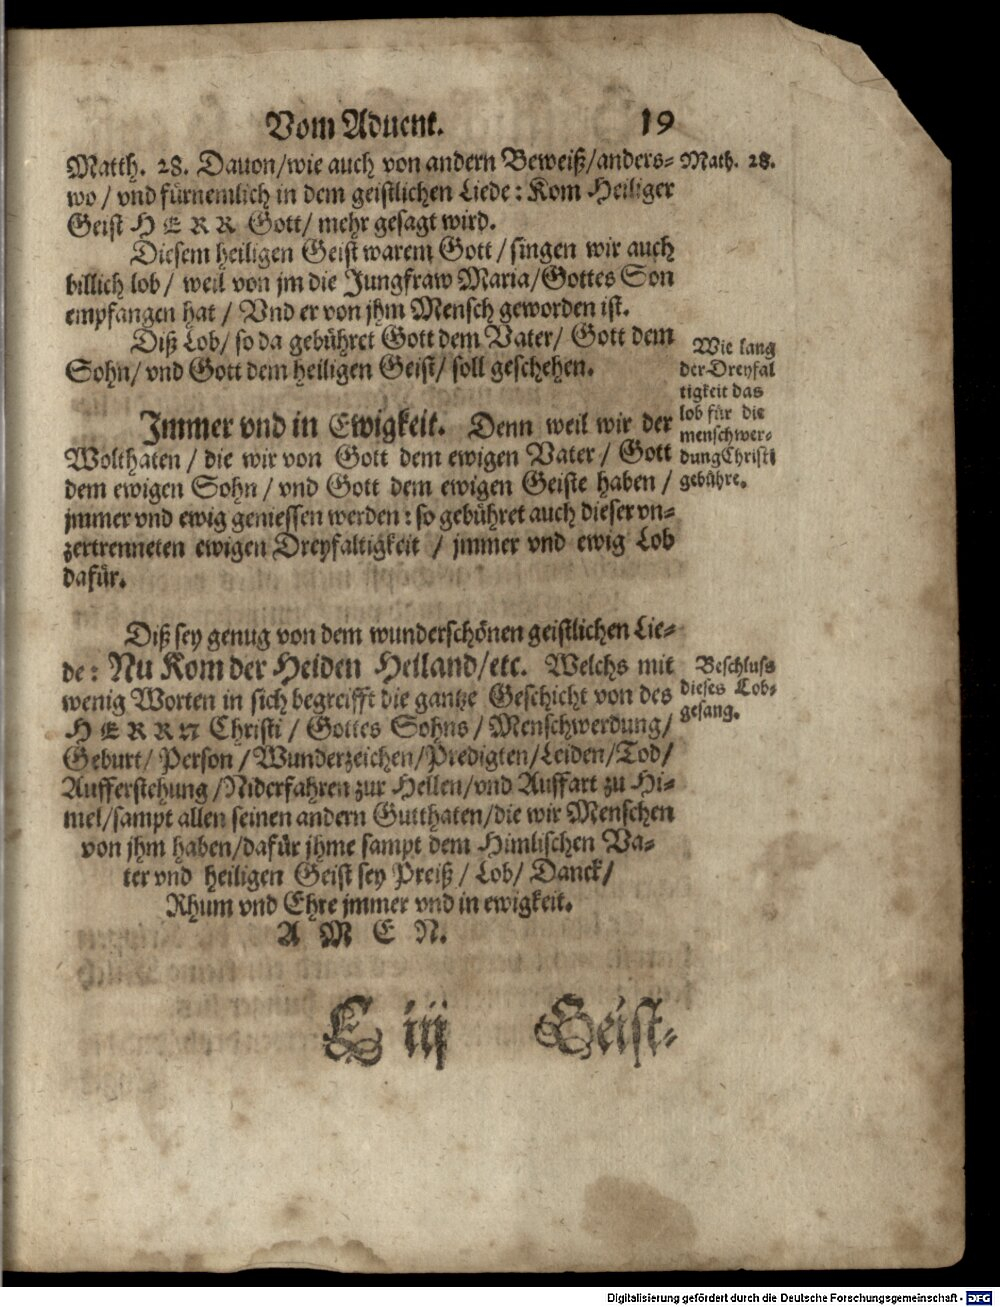 Vom Aduent. 19
Matth. 28. Dauon/wie auch von andern Beweiß/anders- Math. 28.
wo / vnd fürnemlich in dem geistlichen Liede: Kom Heiliger
Geist HERR Gott/ mehr gesagt wird.
Diesem heiligen Geist warem Gott / singen wir auch
billich lob / weil von jm die Jungfraw Maria/Gottes Son
empfangen hat / Vnd er von jhm Mensch geworden ist.
Diß Lob/ so da gebühret Gott dem Vater/ Gott dem
Sohn/ vnd Gott dem heiligen Geist/ soll geschehen.
Wie lang
der Dreyfal
tigkeit das
lob für die
menschwer-
dung Christi
gebühre.
Immer vnd in Ewigkeit. Denn weil wir der
Wolthaten / die wir von Gott dem ewigen Vater / Gott
dem ewigen Sohn / vnd Gott dem ewigen Geiste haben /
jmmer vnd ewig geniessen werden: so gebühret auch dieser vn-
zertrenneten ewigen Dreyfaltigkeit / jmmer vnd ewig Lob
dafür.
Diß sey genug von dem wunderschönen geistlichen Lie-
de: Nu Kom der Heiden Heiland/etc. Welchs mit
wenig Worten in sich begreifft die gantze Geschicht von des
HERRN Christi / Gottes Sohns / Menschwerdung/
Geburt/ Person / Wunderzeichen/Predigten/Leiden/Tod/
Aufferstehung /Niderfahren zur Hellen/vnd Auffart zu Hi-
mel/sampt allen seinen andern Gutthaten/die wir Menschen
von jhm haben/dafür jhme sampt dem Himlischen Va-
ter vnd heiligen Geist sey Preiß / Lob/ Danck/
Rhum vnd Ehre jmmer vnd in ewigkeit.
AMEN.
Beschluss
dieses Lob-
gesang.
E iij Geist-
Digitalisierung gefördert durch die Deutsche Forschungsgemeinschaft - DFG